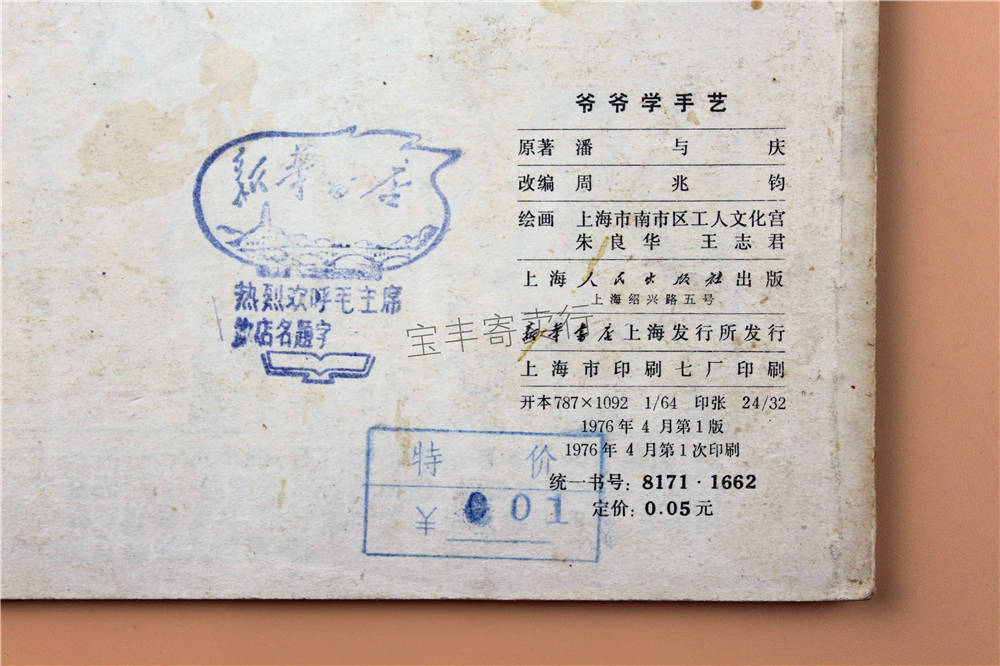 爷爷学手艺
原著 潘与庆
改编 周兆钧
绘画 上海市南市区工人文化宫
朱良华 王志君
上海人民出版社出版
上海绍兴路五号
新华书店上海发行所发行
上海市印刷七厂印刷
开本787×1092 1/64 印张 24/32
1976年4月第1版
1976年4月第1次印刷
统一书号: 8171·1662
定价: 0.05元
新华书店
热烈欢呼毛主席
店名题字
特价
¥ 001
宝丰寄卖行